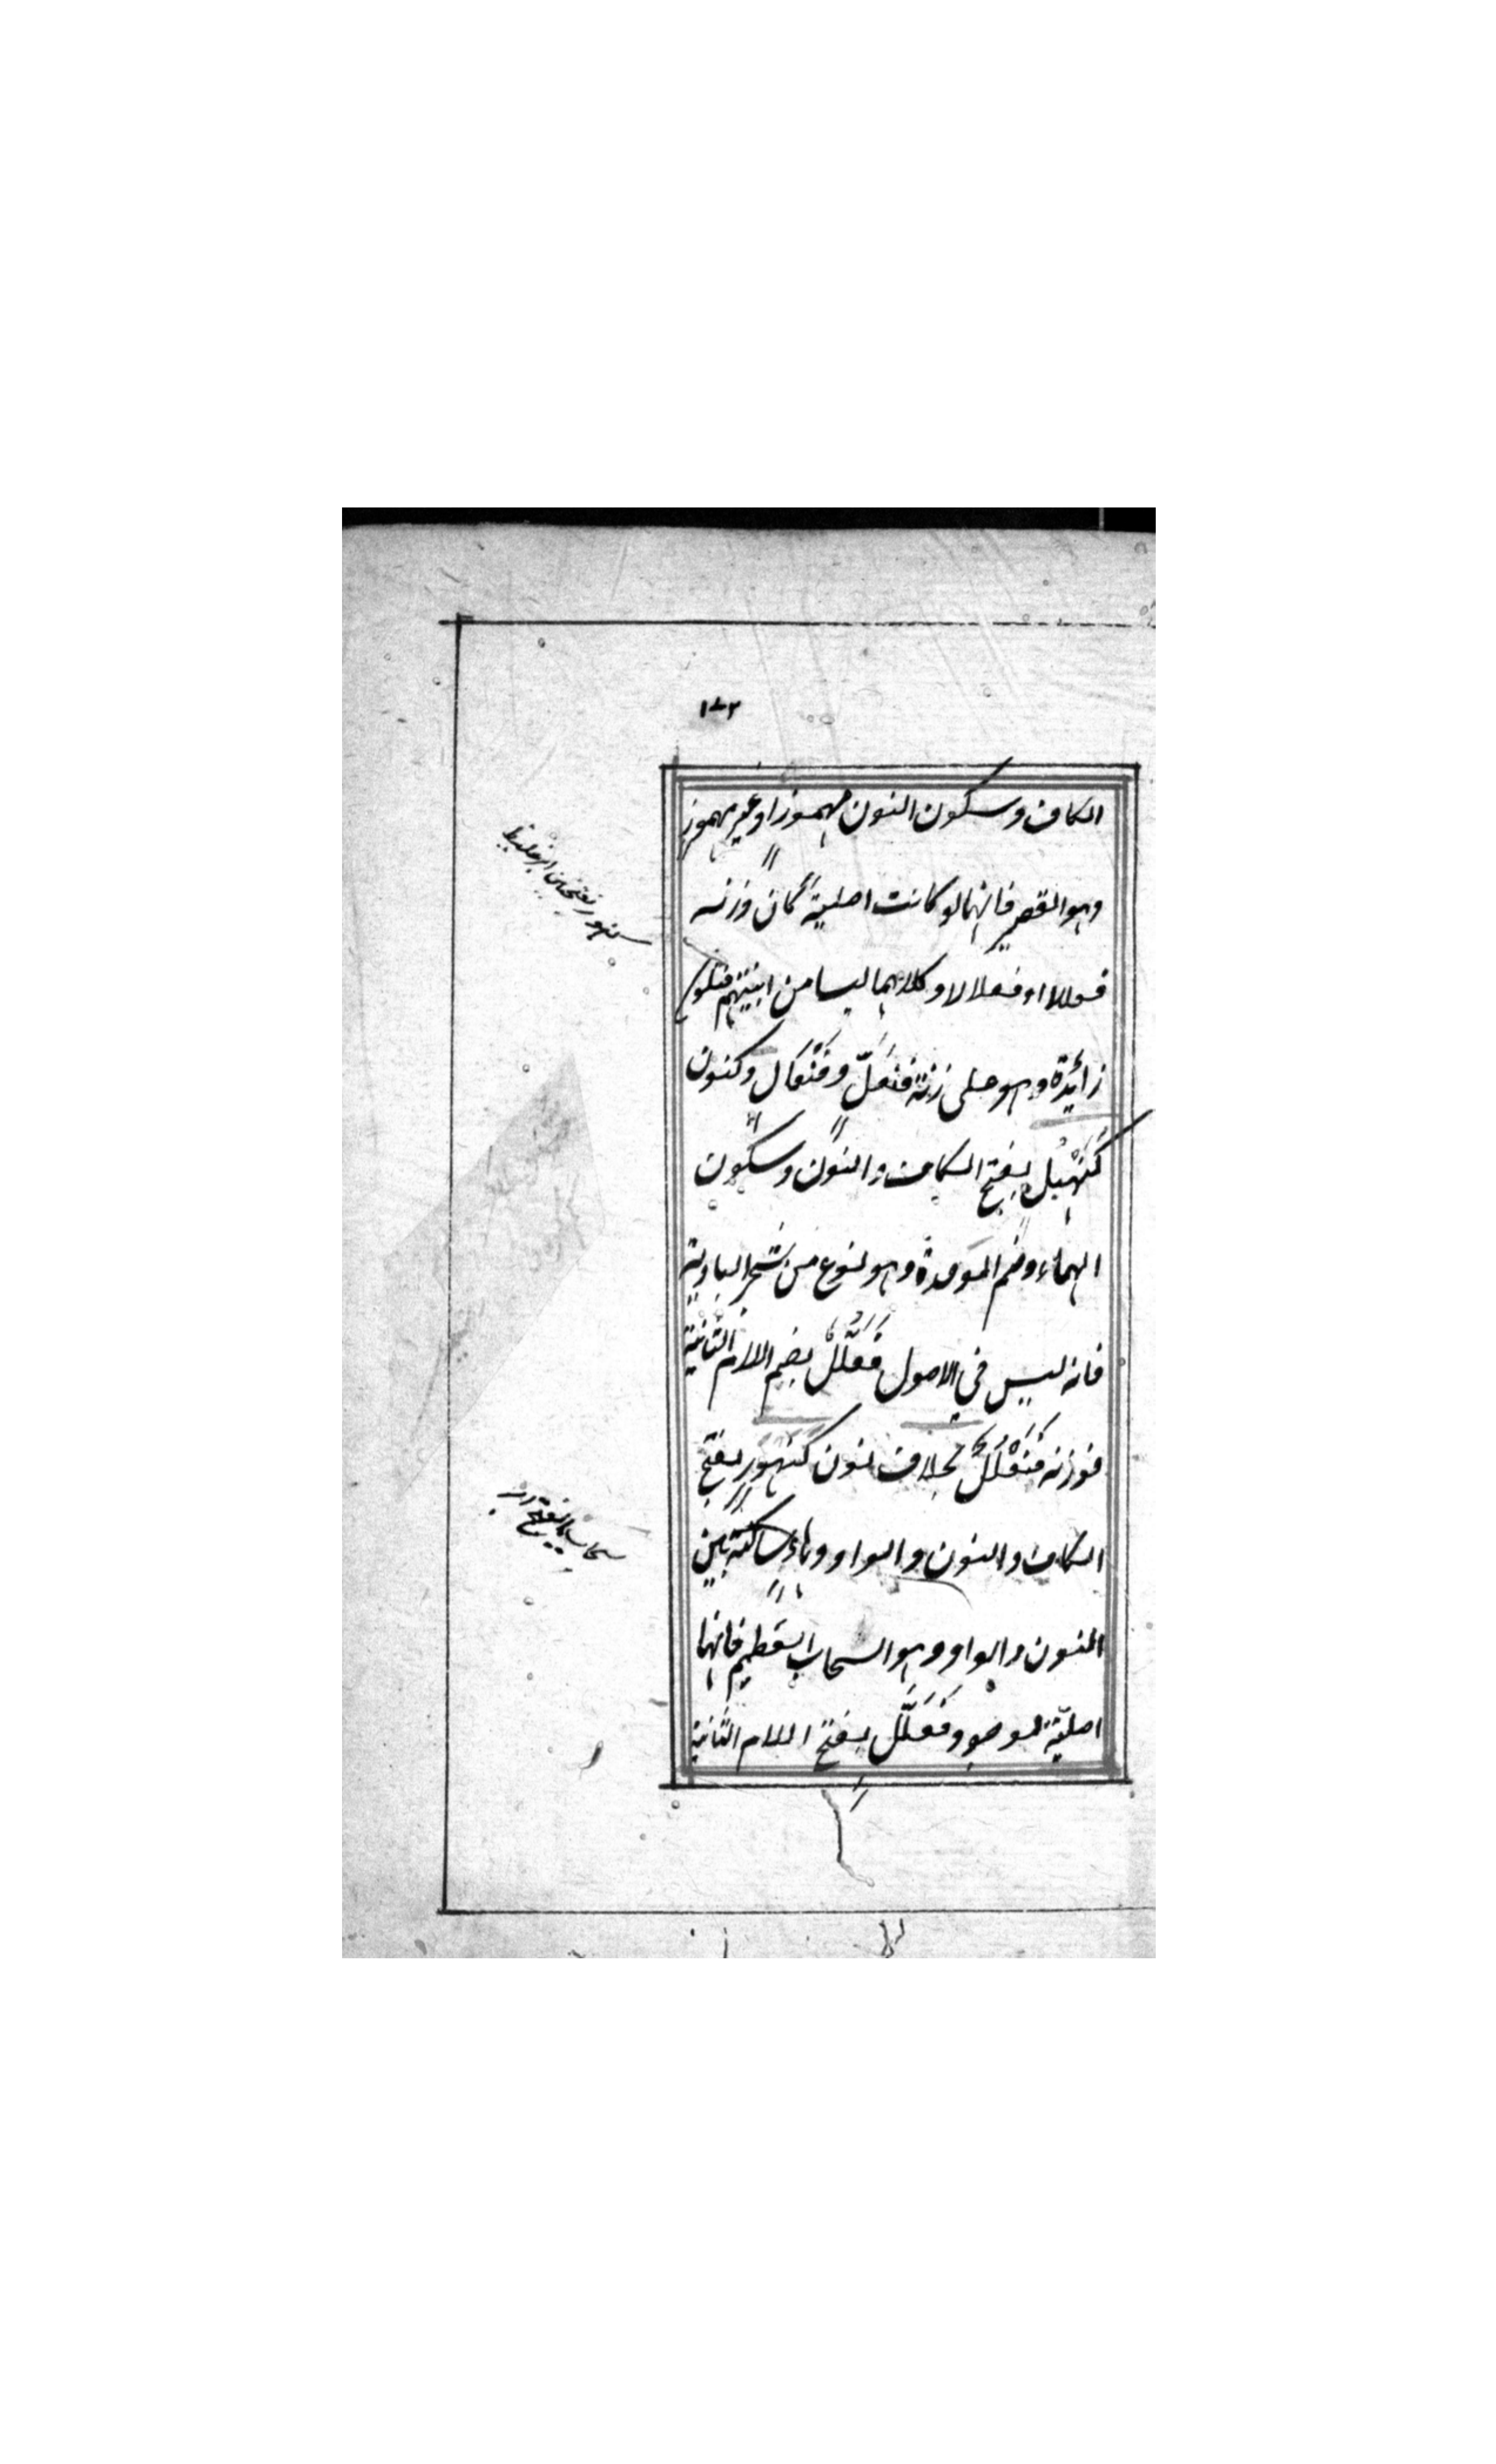 ١٠٢
الكاف وسكون النون مهموزا وغير مهموز
وهو القصير فانهما لو كانت اصلية كان وزنه
فعللاا او فعلالا وكلاهما ليسا من ابنيتهم فنكون
زائدة وهو على زنة فَنْعَلّ و فَنْعَال وكنون
كَنَهْبُل بفتح الكاف والنون وسكون
الهاء وضم الموحدة وهو نوع من شجر البادية
فانه ليس في الاصول فَعَلَّلُ بضم اللام الثانية
فوزنه فَنَعْلُلُ بخلاف نون كَنَهْوَر بفتح
الكاف والنون والواو وهاء ساكنة بين
النون والواو وهو السحاب العظيم فانها
اصليّة لوجود فَعَلَّل بفتح اللام الثانية